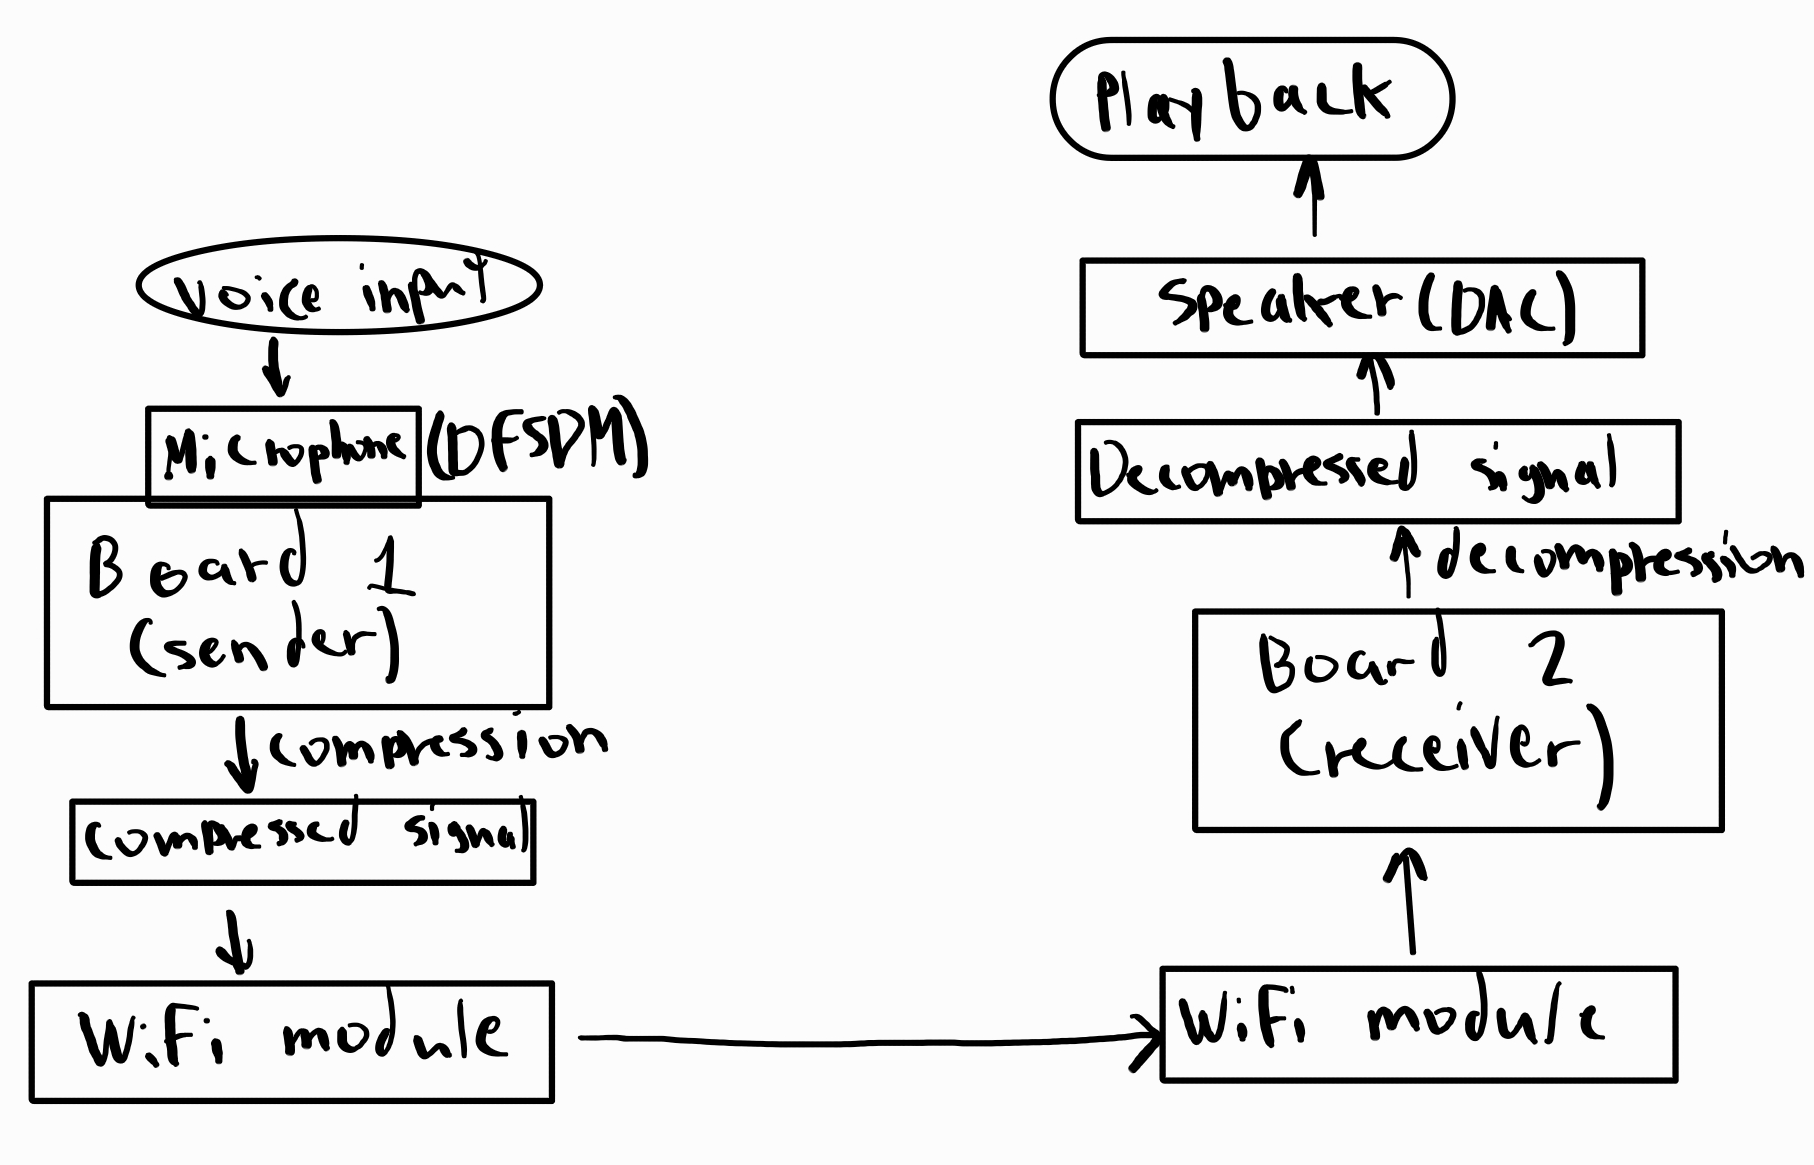 Voice input
Microphone (DFSDM)
Board 1
(sender)
compression
compressed signal
WiFi module
WiFi module
Board 2
(receiver)
decompression
Decompressed signal
Speaker (DAC)
Playback